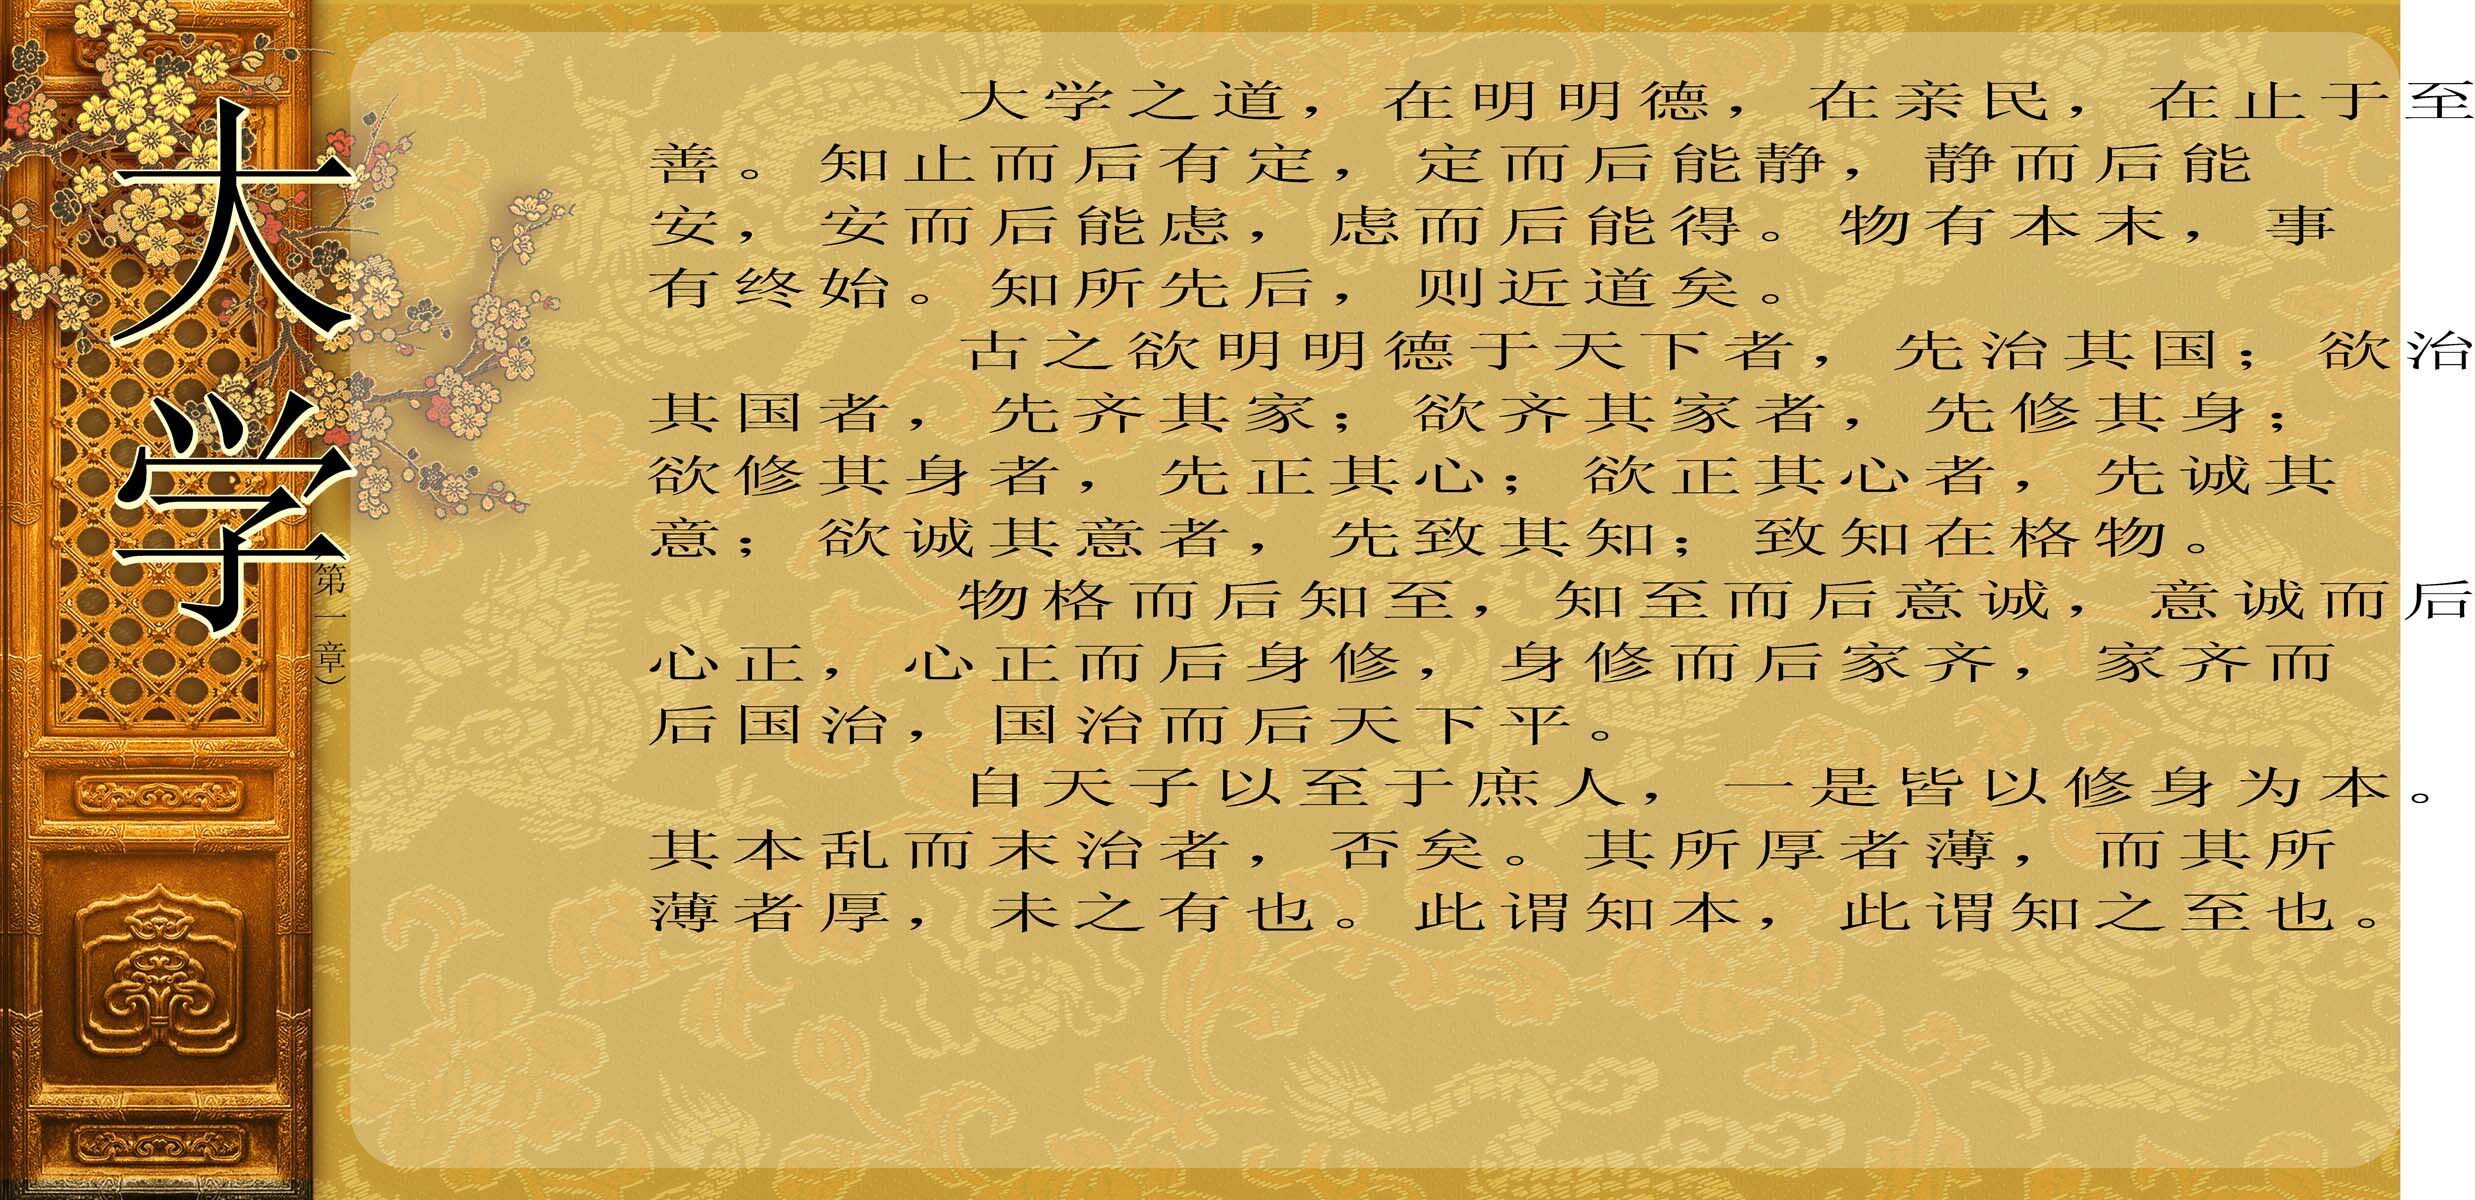 大学
（第一章）
大学之道，在明明德，在亲民，在止于至
善。知止而后有定，定而后能静，静而后能
安，安而后能虑，虑而后能得。物有本末，事
有终始。知所先后，则近道矣。
古之欲明明德于天下者，先治其国；欲治
其国者，先齐其家；欲齐其家者，先修其身；
欲修其身者，先正其心；欲正其心者，先诚其
意；欲诚其意者，先致其知；致知在格物。
物格而后知至，知至而后意诚，意诚而后
心正，心正而后身修，身修而后家齐，家齐而
后国治，国治而后天下平。
自天子以至于庶人，一是皆以修身为本。
其本乱而末治者，否矣。其所厚者薄，而其所
薄者厚，未之有也。此谓知本，此谓知之至也。